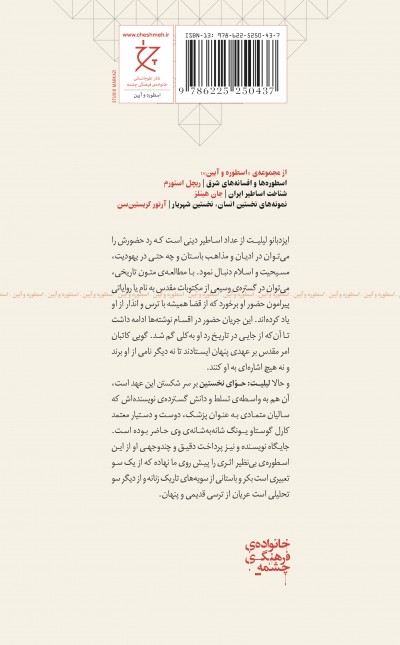 www.cheshmeh.ir
ناشر علوم‌انسانی
خانواده‌ی فرهنگی چشمه
اسطوره و آیین
STUDIO MARKAZI
ISBN-13: 978-622-5250-43-7
9 786225 250437
از مجموعه‌ی «اسطوره و آیین»:
اسطوره‌ها و افسانه‌های شرق | ریچل استورم
شناخت اساطیر ایران | جان هینلز
نمونه‌های نخستین انسان، نخستین شهریار | آرتور کریستین‌سن
ایزدبانو لیلیت از عداد اساطیر دینی است که رد حضورش را
می‌توان در ادیان و مذاهب باستان و چه حتی در یهودیت،
مسیحیت و اسلام دنبال نمود. با مطالعه‌ی متون تاریخی،
می‌توان در گستره‌ی وسیعی از مکتوبات مقدس به نام یا روایاتی
اسطوره و آیین - اسطوره و آیین - اسطوره و آیین
پیرامون حضور او برخورد که از قضا همیشه با ترس و انذار از او
یاد کرده‌اند. این جریان حضور در اقسام نوشته‌ها ادامه داشت
تا آن‌که از جایی در تاریخ رد او به‌کلی گم شد. گویی کاتبان
امر مقدس بر عهدی پنهان ایستادند تا نه دیگر نامی از او برند
و نه هیچ اشاره‌ای به او کنند.
و حالا لیلیت: حوّای نخستین بر سر شکستن این عهد است،
آن هم به واسطه‌ی تسلط و دانش گسترده‌ی نویسنده‌اش که
سالیان متمادی به عنوان پزشک، دوست و دستیار معتمد
کارل گوستاو یونگ شانه‌به‌شانه‌ی وی حاضر بوده است.
جایگاه نویسنده و نیز پرداخت دقیق و چندوجهی او از این
اسطوره‌ی بی‌نظیر اثری را پیش روی ما نهاده که از یک سو
تعبیری است بکر و باستانی از سویه‌های تاریک زنانه و از دیگر سو
تحلیلی است عریان از ترسی قدیمی و پنهان.
خانواده‌ی
فرهنگی
چشمه